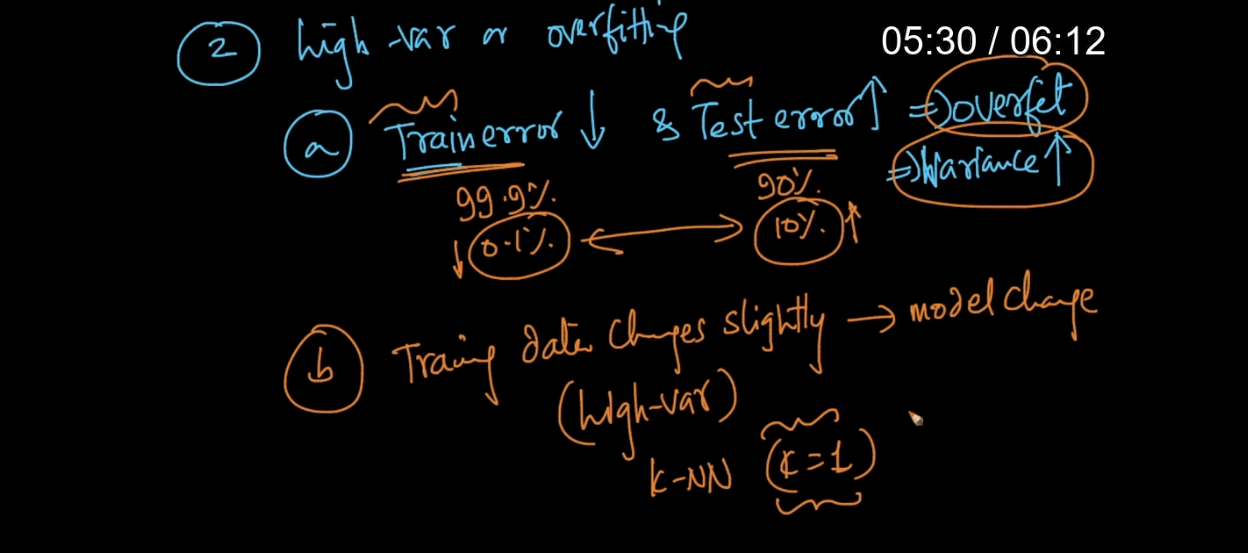 2 high-var or overfitting
05:30 / 06:12
a Train error ↓ & Test error ↑ => overfit
=> Variance ↑
99.9% 90%
↓ 0.1% ↔ 10% ↑
b Traing data changes slightly → model change
(high-var)
K-NN (K=1)